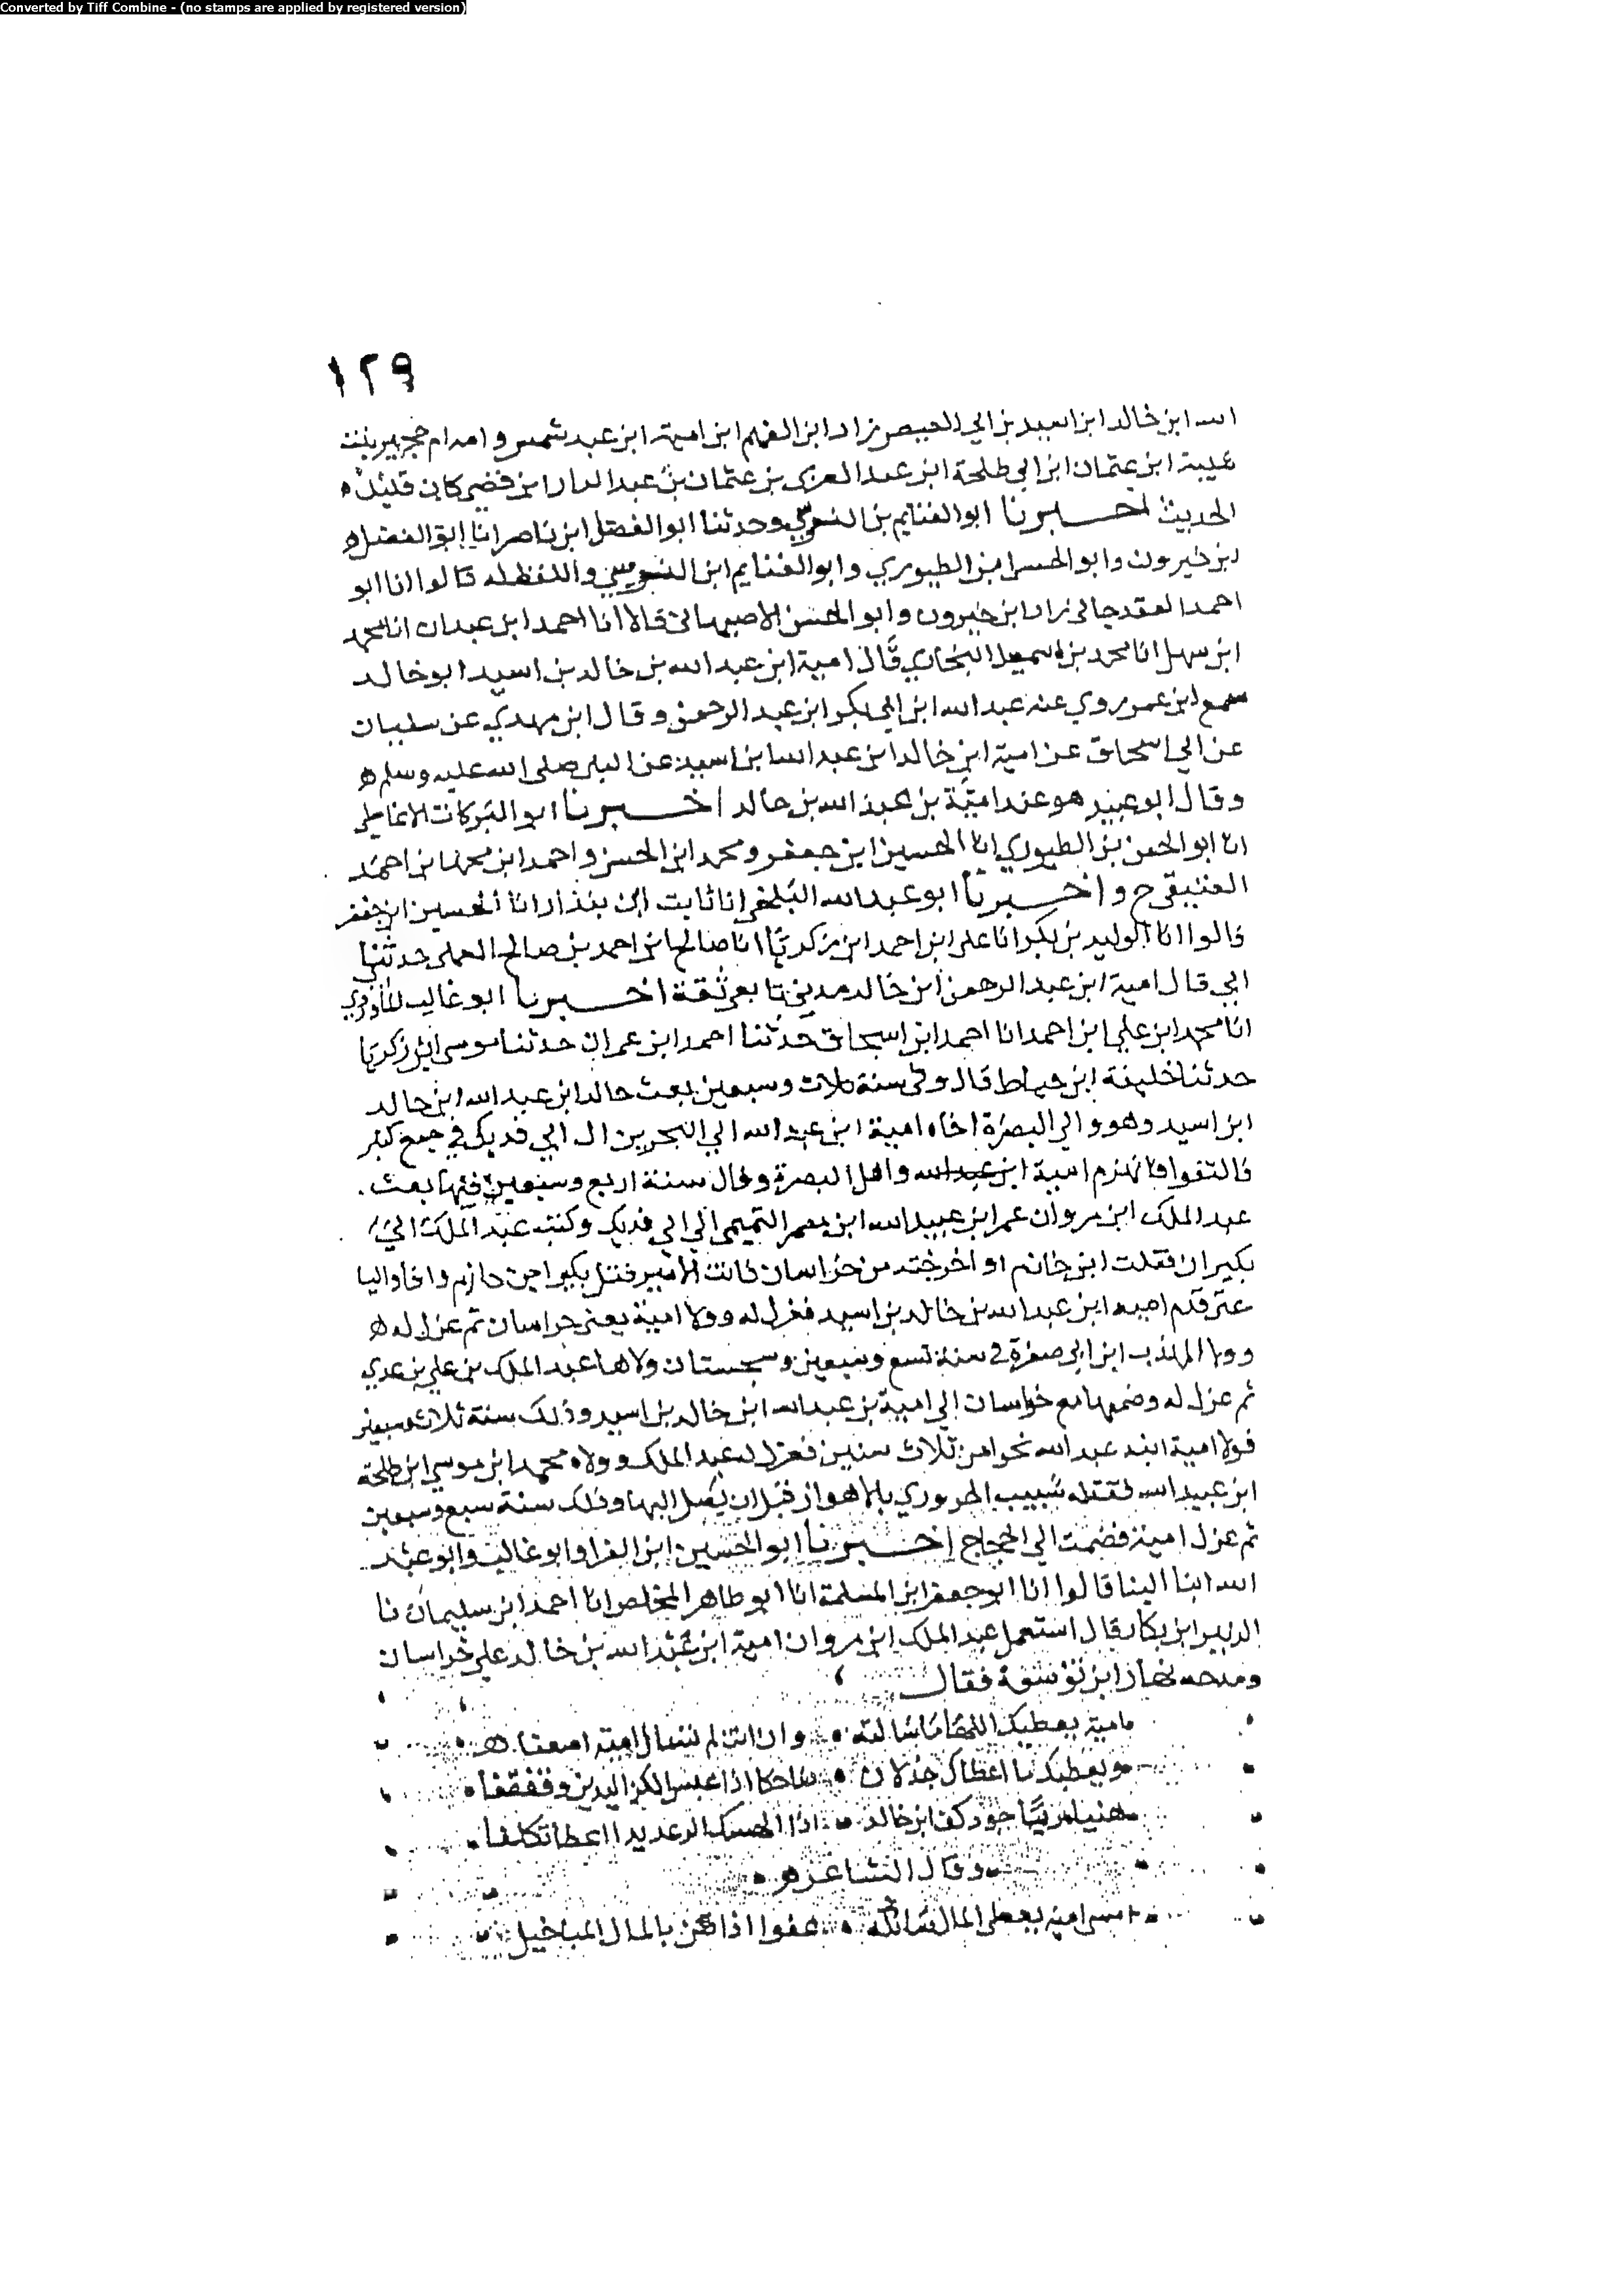 Converted by Tiff Combine - (no stamps are applied by registered version)
١٢٩
الله ابن خالد ابن اسيد بن ابي العيص زاد ابن الفهم ابن امية ابن عبد شمس وامه ام حجير بنت
شيبة ابن عثمان ابن ابي طلحة ابن عبد العزى بن عثمان بن عبد الدار ابن قصي كان قليل
الحديث اخبرنا ابو الغنايم بن النرسي وحدثنا ابو الفضل ابن ناصر انا ابو الفضل
بن خيرون وابو الحسين ابن الطيوري وابو الغنايم ابن النرسي واللفظ له قالوا انا ابو
احمد الغندجاني زاد ابن خيرون وابو الحسن الاصبهاني قالا انا احمد ابن عبدان انا محمد
ابن سهل انا محمد بن اسمعيل البخاري قال امية ابن عبد الله بن خالد بن اسيد ابو خالد
سمع ابن عمر روي عنه عبد الله ابن ابي بكر ابن عبد الرحمن وقال ابن مهدي عن سفيان
عن ابي اسحاق عن امية ابن خالد ابن عبد الله ابن اسيد عن النبي صلى الله عليه وسلم
وقال ابو عبيد هو عندي امية بن عبد الله بن خالد اخبرنا ابو البركات الانماطي
انا ابو الحسين بن الطيوري انا الحسين ابن جعفر ومحمد ابن الحسن واحمد ابن محمد ابن احمد
العتيقي ح واخبرنا ابو عبد الله البلخي انا ثابت ابن بندار انا الحسين ابن جعفر
قالوا انا الوليد بن بكر انا علي ابن احمد ابن زكريا انا صالح ابن احمد بن صالح العجلي حدثني
ابي قال امية ابن عبد الرحمن ابن خالد مديني تابعي ثقة اخبرنا ابو غالب الماوردي
انا محمد ابن علي ابن احمد انا احمد ابن اسحاق حدثنا احمد ابن عمران حدثنا موسى ابن زكريا
حدثنا خليفة ابن خياط قال وفي سنة ثلاث وسبعين بعث خالد ابن عبد الله ابن خالد
ابن اسيد وهو والي البصرة اخاه امية ابن عبد الله الي البحرين الى ابي فديك في جمع كثير
فالتقوا فانهزم امية ابن عبد الله واهل البصرة وقال سنة اربع وسبعين فيها بعث
عبد الملك ابن مروان عمر ابن عبيد الله ابن معمر التميمي الي ابي فديك وكتب عبد الملك الي
بكير ان قتلت ابن خازم او اخرجته من خراسان فانت الامير فقتل بكير ابن خازم واقام واليا
حتى قدم امية ابن عبد الله بن خالد بن اسيد فعزله وولا امية يعني خراسان ثم عزله
وولا المهلب ابن ابي صفرة في سنة تسع وسبعين وسجستان ولاها عبد الملك بن علي بن عدي
ثم عزله وضمها مع خراسان الي امية بن عبد الله ابن خالد بن اسيد وذلك سنة ثلاث وسبعين
فولا امية ابنه عبد الله نحوا من ثلاث سنين فعزله عبد الملك وولاه محمد ابن موسي ابن طلحة
ابن عبيد الله فقتله شبيب الحروري بالاهواز قبل ان يصل اليها وذلك سنة سبع وسبعين
ثم عزل امية فضمت الي الحجاج اخبرنا ابو الحسين ابن الفرا وابو غالب وابو عبد
الله ابنا البنا قالوا انا ابو جعفر ابن المسلمة انا ابو طاهر المخلص انا احمد ابن سليمان نا
الزبير ابن بكار قال استعمل عبد الملك ابن مروان امية ابن عبد الله بن خالد على خراسان
ومدحه نهار ابن توسعة فقال
امية يعطيك اللها ما سالته وان انت لم تسال امية اضعفا
ويعطيك ما اعطاك جذلان ضاحكا اذا عبس الكز اليدين وقفقفا
هنيا مريا جود كف ابن خالد اذا الممسك الرعديد اعطا تكلفا
وقال الشاعر
امسى امية يعطي المال سائله عفوا اذا ضن بالمال المباخيل